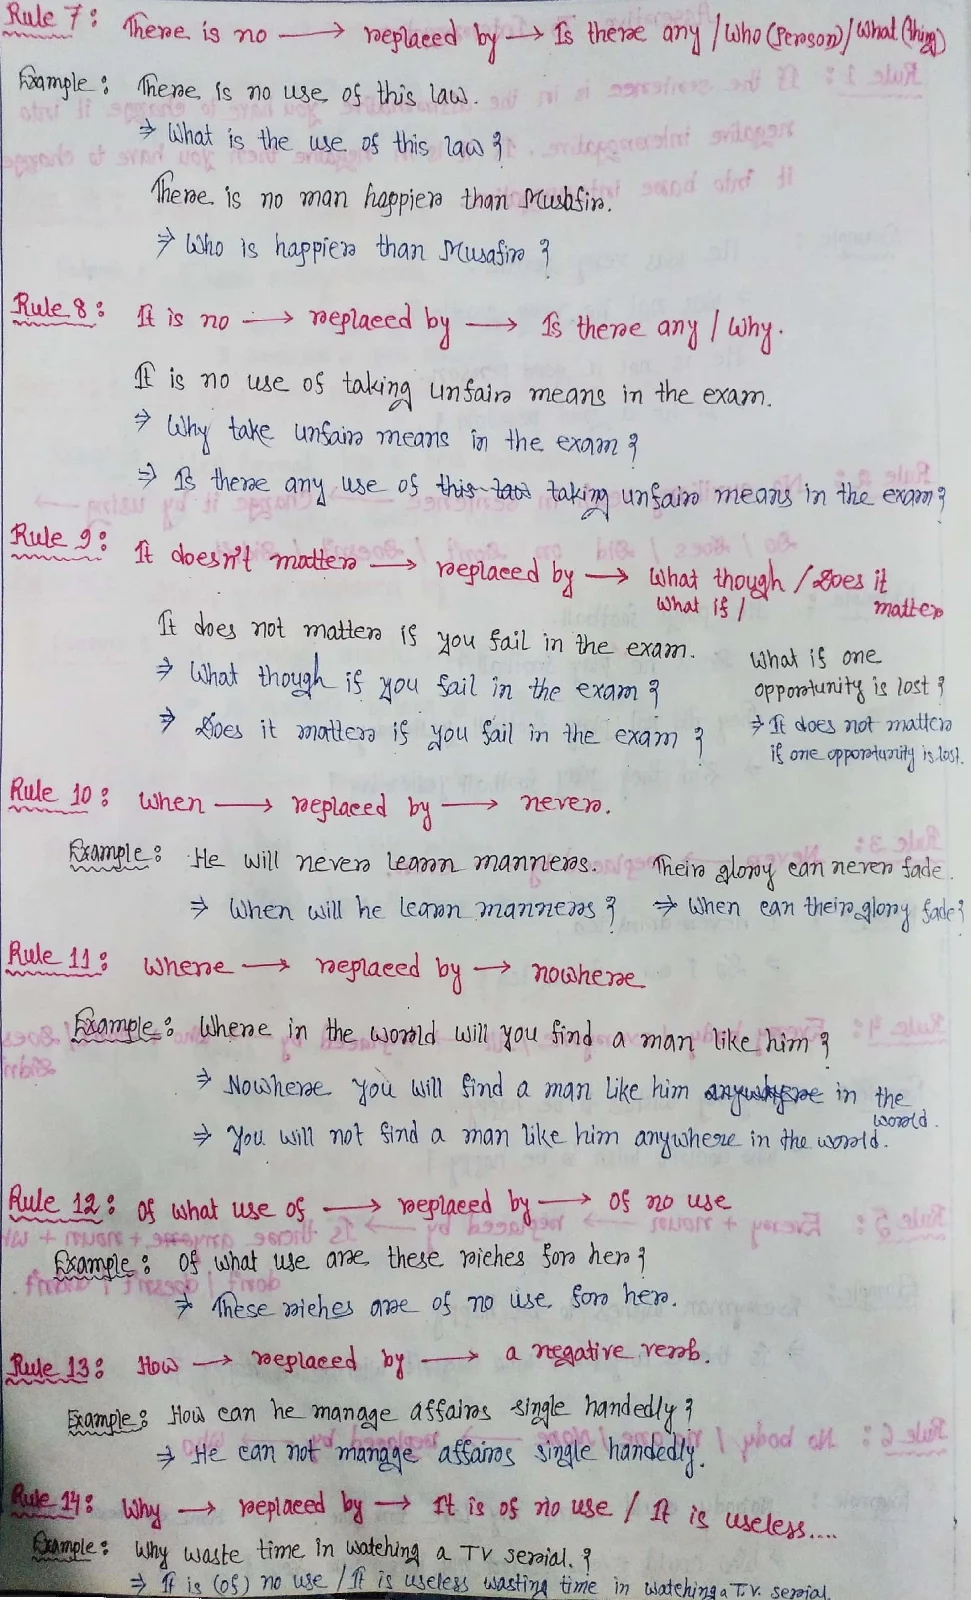 Rule 7: There is no → replaced by → Is there any / Who (Person) / What (thing)
Example: There is no use of this law.
⇒ What is the use of this law?
There is no man happier than Musafir.
⇒ Who is happier than Musafir?
Rule 8: It is no → replaced by → Is there any / Why.
It is no use of taking unfair means in the exam.
⇒ Why take unfair means in the exam?
⇒ Is there any use of this law taking unfair means in the exam?
Rule 9: It doesn't matter → replaced by → What though / Does it
What if / matter
It does not matter if you fail in the exam.
⇒ What though if you fail in the exam?
⇒ Does it matter if you fail in the exam?
What if one
opportunity is lost?
⇒ It does not matter
if one opportunity is lost.
Rule 10: When → replaced by → never.
Example: He will never learn manners. Their glory can never fade.
⇒ When will he learn manners? ⇒ When can their glory fade?
Rule 11: Where → replaced by → nowhere
Example: Where in the world will you find a man like him?
⇒ Nowhere you will find a man like him anywhere in the
world.
⇒ You will not find a man like him anywhere in the world.
Rule 12: Of what use of → replaced by → Of no use
Example: Of what use are these riches for her?
⇒ These riches are of no use for her.
Rule 13: How → replaced by → a negative verb.
Example: How can he manage affairs single handedly?
⇒ He can not manage affairs single handedly.
Rule 14: Why → replaced by → It is of no use / It is useless....
Example: Why waste time in watching a TV serial.?
⇒ It is (of) no use / It is useless wasting time in watching a T.V. serial.